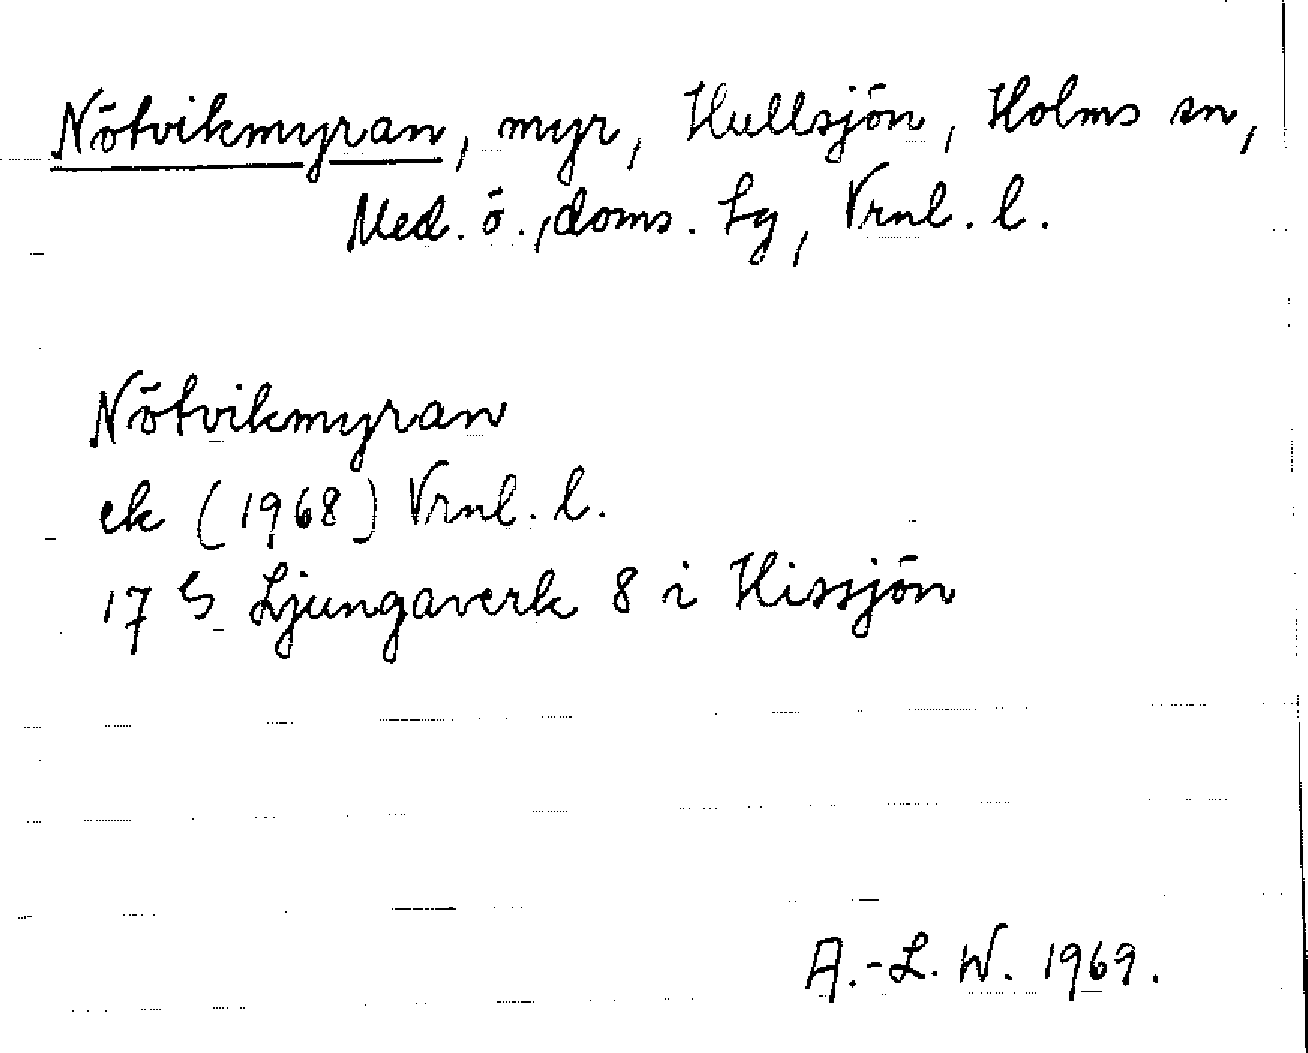 Nötvikmyran, myr, Hullsjön, Holms sn,
Med. ö., doms. Lg, Vrnl. l.
Nötvikmyran
ek (1968) Vrnl. l.
17 G Ljungaverk 8 i Hissjön
A.-L. W. 1969.